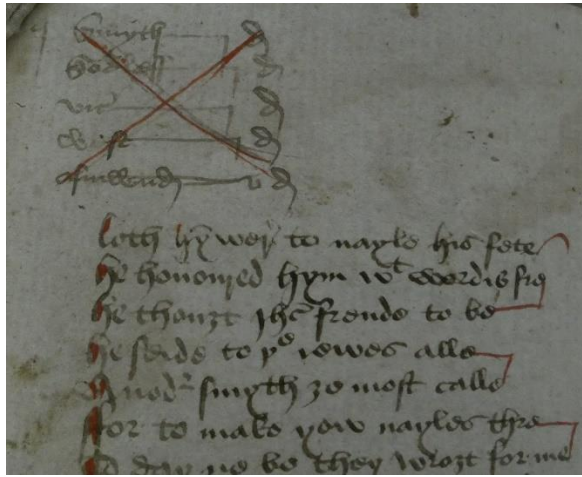 Smyth d
d
vic d
West d
v d
loth hȳ wer to nayle his fete
he honoured hym wt wordis fre
he thouȝt ihc frende to be
he seide to þe iewes alle
Anodr smyth ȝe most calle
ffor to make yow nayles thre
day ne be they wroȝt for me